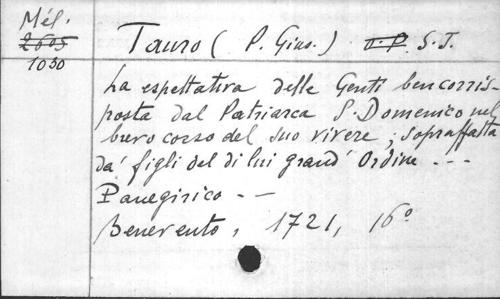 Mél.
2605
1030
Tauro ( P. Gius. ) O.P. S.J.
La espettativa delle Genti ben corris-
posta dal Patriarca S. Domenico nel
corso del suo vivere ; sopraffatta
da' figli del di lui grand' Ordine - - -
Panegirico - -
Benevento, 1721, 16º